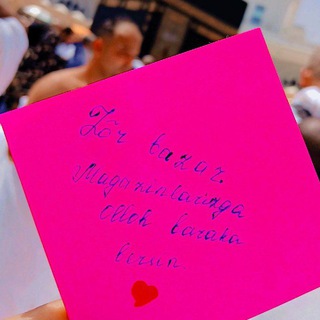 Zòr bazar
Magazinlarizga
Olloh baraka
bersin